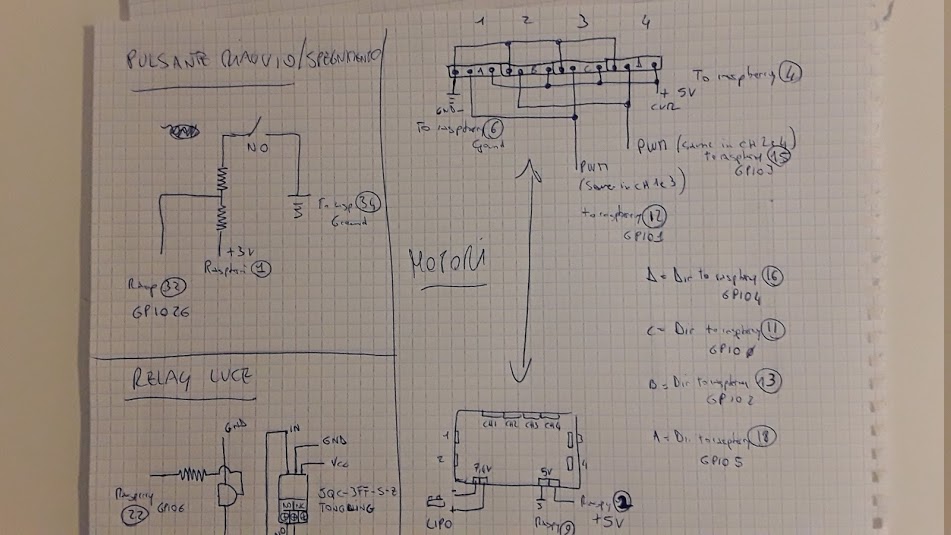 PULSANTE RIAVVIO/SPEGNIMENTO
NO
To rasp. 34
Ground
+3V
Raspberri 1
Rasp 32
GPIO26
RELAY LUCE
GND
Raspberry 22
GPIO6
IN
GND
Vcc
NO NC
JQC-3FF-S-Z
TONGLING
1 2 3 4
A B C D
To raspberry 4
+ 5V
GND
To raspberry 6
Ground
PWM (same in CH 2 e 4)
to raspberry 15
GPIO3
PWM
(same in CH 1 e 3)
to raspberry 12
GPIO1
MOTORI
D = Dir to raspberry 16
GPIO4
C = Dir to raspberry 11
GPIO0
B = Dir to raspberry 13
GPIO2
A = Dir to raspberry 18
GPIO5
CH1 CH2 CH3 CH4
1
2
3
4
7,4V
5V
LIPO
Raspy 2
+5V
Raspy 9